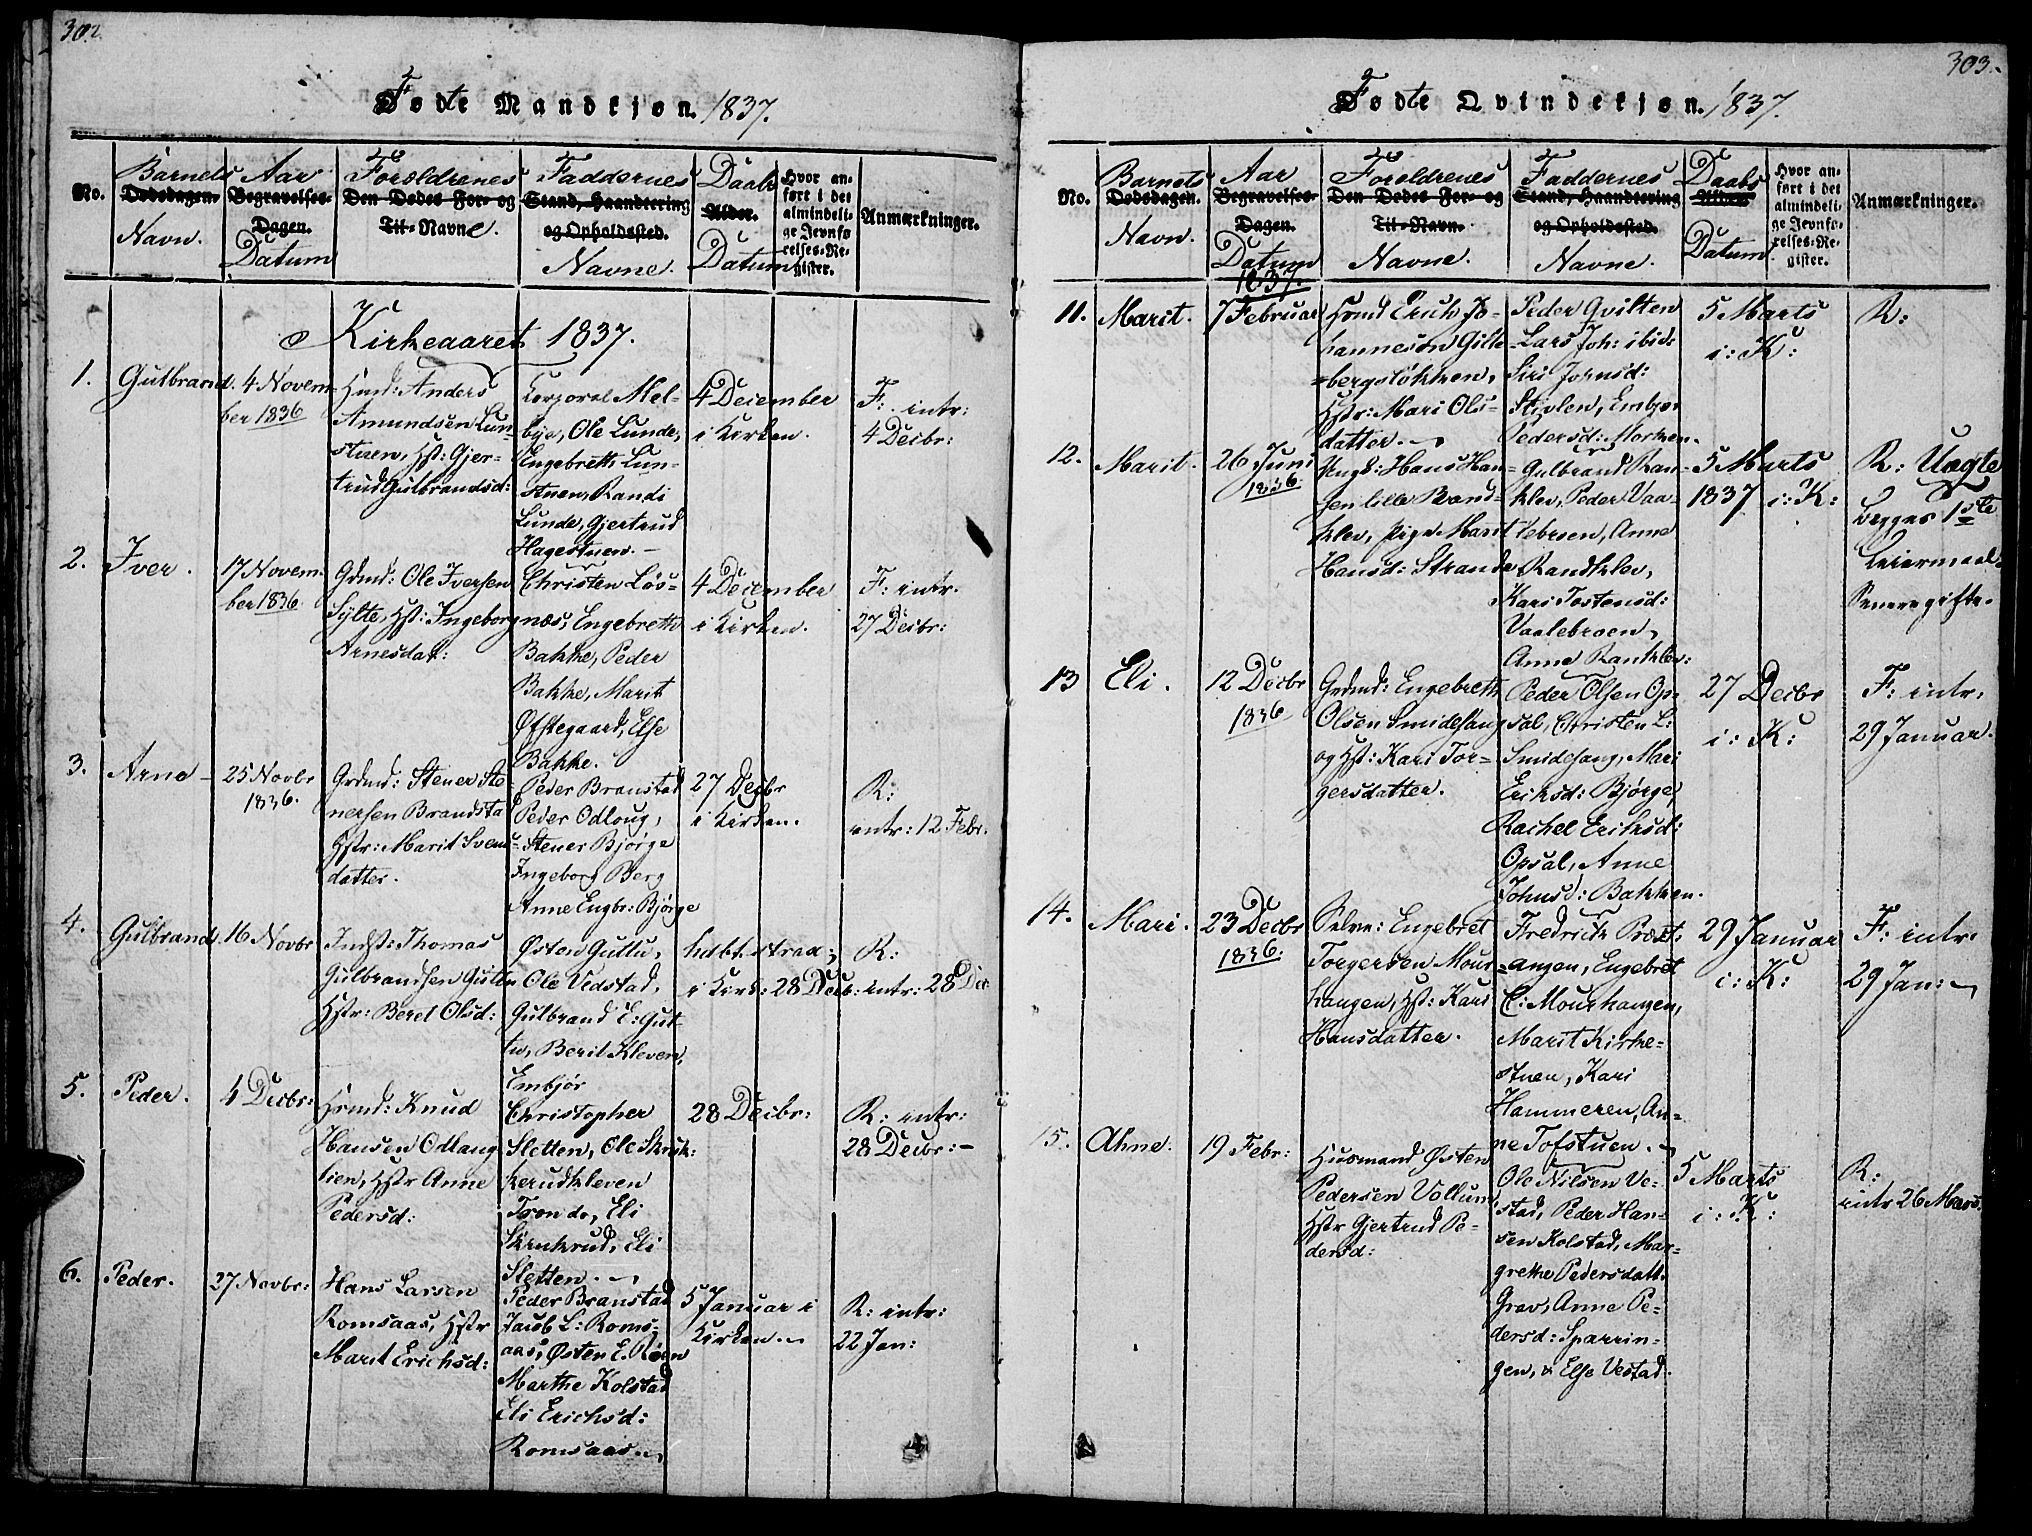 302
Fødte Mandkjøn. 1837.
No.
Barnets
Dødsdagen.
Navn.
Aar
Begravelses-
Dagen.
Datum
Forældrenes
Den Dødes For- og
Til-Navne.
Faddernes
Stand, Haandtering
og Opholdssted.
Navne.
Daabs
Alder.
Datum
Hvor an-
ført i det
almindeli-
ge Jevnfø-
relses-Re-
gister.
Anmærkninger.
Kirkeaaret 1837.
1.
Gulbrand.
4 Novem-
ber 1836
Hmd: Anders
Amundsen Lun-
stuen, Hst: Gjer-
trud Gulbrandsd:
Korporal Mel-
bye, Ole Lunde,
Engebreth Lun-
stuen, Randi
Lunde, Gjertrud
Hagestuen. -
4 December
i Kirken.
F: intr:
4 Decbr:
2.
Iver.
17 Novem-
ber 1836
Grdmd: Ole Iversen
Sylte, Hst: Ingeborg
Arnesdat:
Christen Løs-
næs, Engebreth
Bakke, Peder
Bakke, Marit
Øfstegaard, Else
Bakke.
4 December
i Kirken.
F: intr.
27 Decbr:
3.
Arne
25 Novbr
1836.
Grdmd: Stener Ste-
nersen Brandsta
Hstr: Marit Svens-
datter.
Peder Branstad
Peder Odloug,
Stener Bjørge
Ingeborg Berg
Anne Engbr: Bjørge
27 Decbr
i Kirken.
R:
intr: 12 Febr.
4.
Gulbrand
16 Novbr
Indst: Thomas
Gulbrandsen Gutten
Hstr: Beret Olsd:
Østen Guttu,
Ole Vedstad,
Gulbrand E: Gut-
tu, Berit Kleven,
Embjør
hdbt. strax;
i Kirk: 28 Decb:
R:
intr: 28 Dec
5.
Peder.
4 Decbr:
Hsmd: Knud
Hansen Odloug
lien, Hstr Anne
Pedersd:
Christopher
Sletten, Ole Skruk-
kerudkleven
Tron do, Eli
Skrukrud, Eli
Sletten.
28 Decbr:
R: intr:
28 Decbr: -
6.
Peder.
27 Novbr:
Hans Larsen
Romsaas, Hstr
Marit Erichsd:
Peder Branstad
Jacob L: Roms-
aas, Østen E. Røen
Marthe Kolstad
Eli Erichsd:
Romsaas.
5 Januar i
Kirken
R: intr:
22 Jan:
303.
Fødte Qvindekjøn. 1837.
No.
Barnets
Dødsdagen.
Navn.
Aar
Begravelses-
Dagen.
Datum
1837.
Foreldrenes
Den Dødes For- og
Til-Navn.
Navne.
Faddernes
Stand, Haandtering
og Opholdssted.
Navne.
Daabs
Alder.
Datum
Hvor an-
ført i det
almindeli-
ge Jevnfø-
relses-Re-
gister.
Anmærkninger.
11.
Marit.
7 Februar
Hsmd Erich Jo-
hannesen Gille-
bergsløkken,
Hstr: Mari Ols-
datter.
Peder Qvilten
Lars Joh: ibid:
Siri Jornsd:
Stivlen, Embjør
Pedersd: Morken.
5 Marts
i: K:
R:
12.
Marit.
26 Juni
1836.
Ungk: Hans Han-
sen lille Rand-
klev, pige Marit
Hansd: Strande
Gulbrand Ran-
klev, Peder Vaa-
lebroen, Anne
Randklev,
Kari Tostensd:
Vaalebroen,
Anne Ranklev:
5 Marts
1837 i: K:
R: Uægte
begges 1ste
Leiermaal
Senere gifte.
13
Eli.
12 Decbr
1836
Grdmd: Engebreth
Olsen Smidesang
og Hst: Kari Tor-
gersdatter.
Peder Olsen Op-
sal, Christen L:
Smidesang, Mari
Eriksd: Bjørge,
Rachel Eriksd:
Opsal, Anne
Johnsd: Bakken.
27 Decbr
i: K:
F: intr.
29 Januar.
14.
Mari.
23 Decbr
1836.
Selve: Engebret
Torgersen Mour-
hangen, Hst: Kari
Hansdatter.
Fredrich Præst-
angen, Engebret
E: Mourhangen,
Marit Kirke-
stuen, Kari
Hammeren, An-
ne Tofstuen.
29 Januar
i: K:
F: intr.
29 Jan:
15.
Ahne.
19 Febr:
Huusmand Østen
Pedersen Vollum
Hstr Gjertrud Pe-
dersd:
Ole Nilsen Ve-
stad, Peder Han-
sen Kolstad, Mar-
grethe Pedersdatt.
Grav, Anne Pe-
dersd: Sparrin-
gen, & Else Vestad.
5 Marts
i: K:
R:
intr 26 Mars.